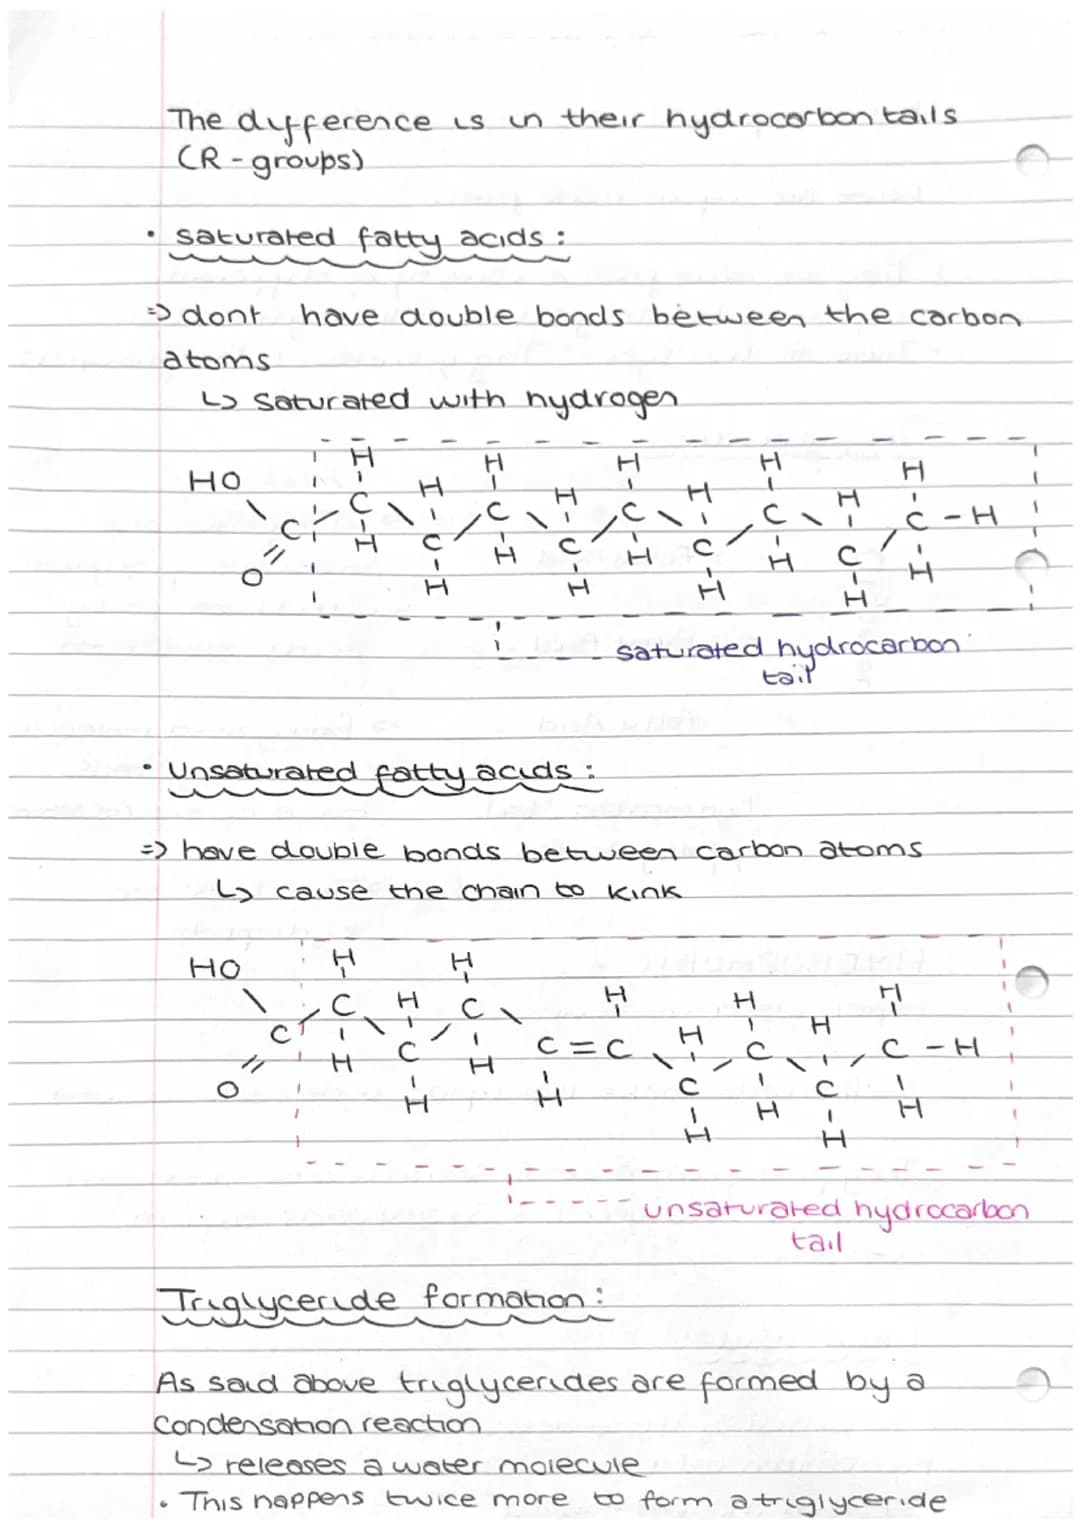 The difference is in their hydrocarbon tails
(R-groups)
• saturated fatty acids :
=> dont have double bonds between the carbon
atoms
↳ saturated with hydrogen
H H H H H
HO H H H H
C C C C C - H
C H C H C H C H C H
O H H H H
saturated hydrocarbon
tail
• Unsaturated fatty acids :
=> have double bonds between carbon atoms
↳ cause the chain to kink
HO H H
C H C H H H
C H C H C = C H C H C - H
O H H C H C H
H H
unsaturated hydrocarbon
tail
Triglyceride formation :
As said above triglycerides are formed by a
condensation reaction
↳ releases a water molecule
• This happens twice more to form a triglyceride